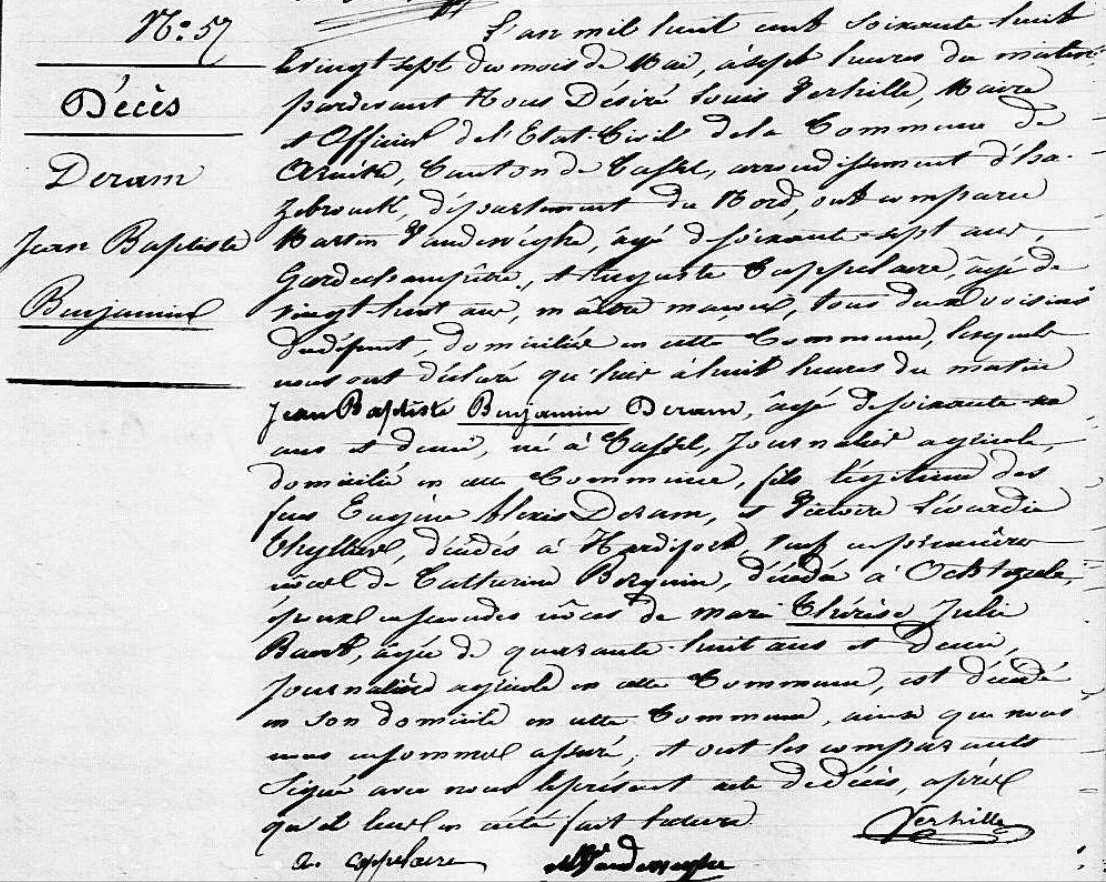 N.° 57
Décès
Deram
Jean Baptiste
Benjamin
L'an mil huit cent soixante huit
le vingt sept du mois de Mai, à sept heures du matin
pardevant Nous Désiré Louis Verhille, Maire
et Officier de l'Etat-Civil de la Commune de
Arnèke, Canton de Cassel, arrondissement d'Ha-
zebrouck, département du Nord, ont comparu
Martin Vandewighe, âgé de soixante-sept ans,
Garde champêtre, et Auguste Cappelaere, âgé de
vingt-huit ans, maître maçon, tous deux voisins
du défunt, domiciliés en cette Commune, lesquels
nous ont déclaré qu'hier à huit heures du matin
Jean Baptiste Benjamin Deram, âgé de soixante
ans et demi, né à Cassel, Journalier agricole,
domicilié en cette Commune, fils légitime des
feus Eugène Alexis Deram, et Victoire Léocadie
décédés à Hardifort, veuf en premières
nôces de Catherine Berquin, décédée à Ochtezeele,
époux en secondes nôces de Marie Thérèse Julie
Baert, âgée de quarante-huit ans et demi,
Journalière agricole en cette Commune, est décédé
en son domicile en cette Commune, ainsi que nous
nous en sommes assuré, et ont les comparants
Signé avec nous le présent acte de décès, après
qu'il leur en a été fait lecture
Verhille
a. Cappelaere M Vandewighe